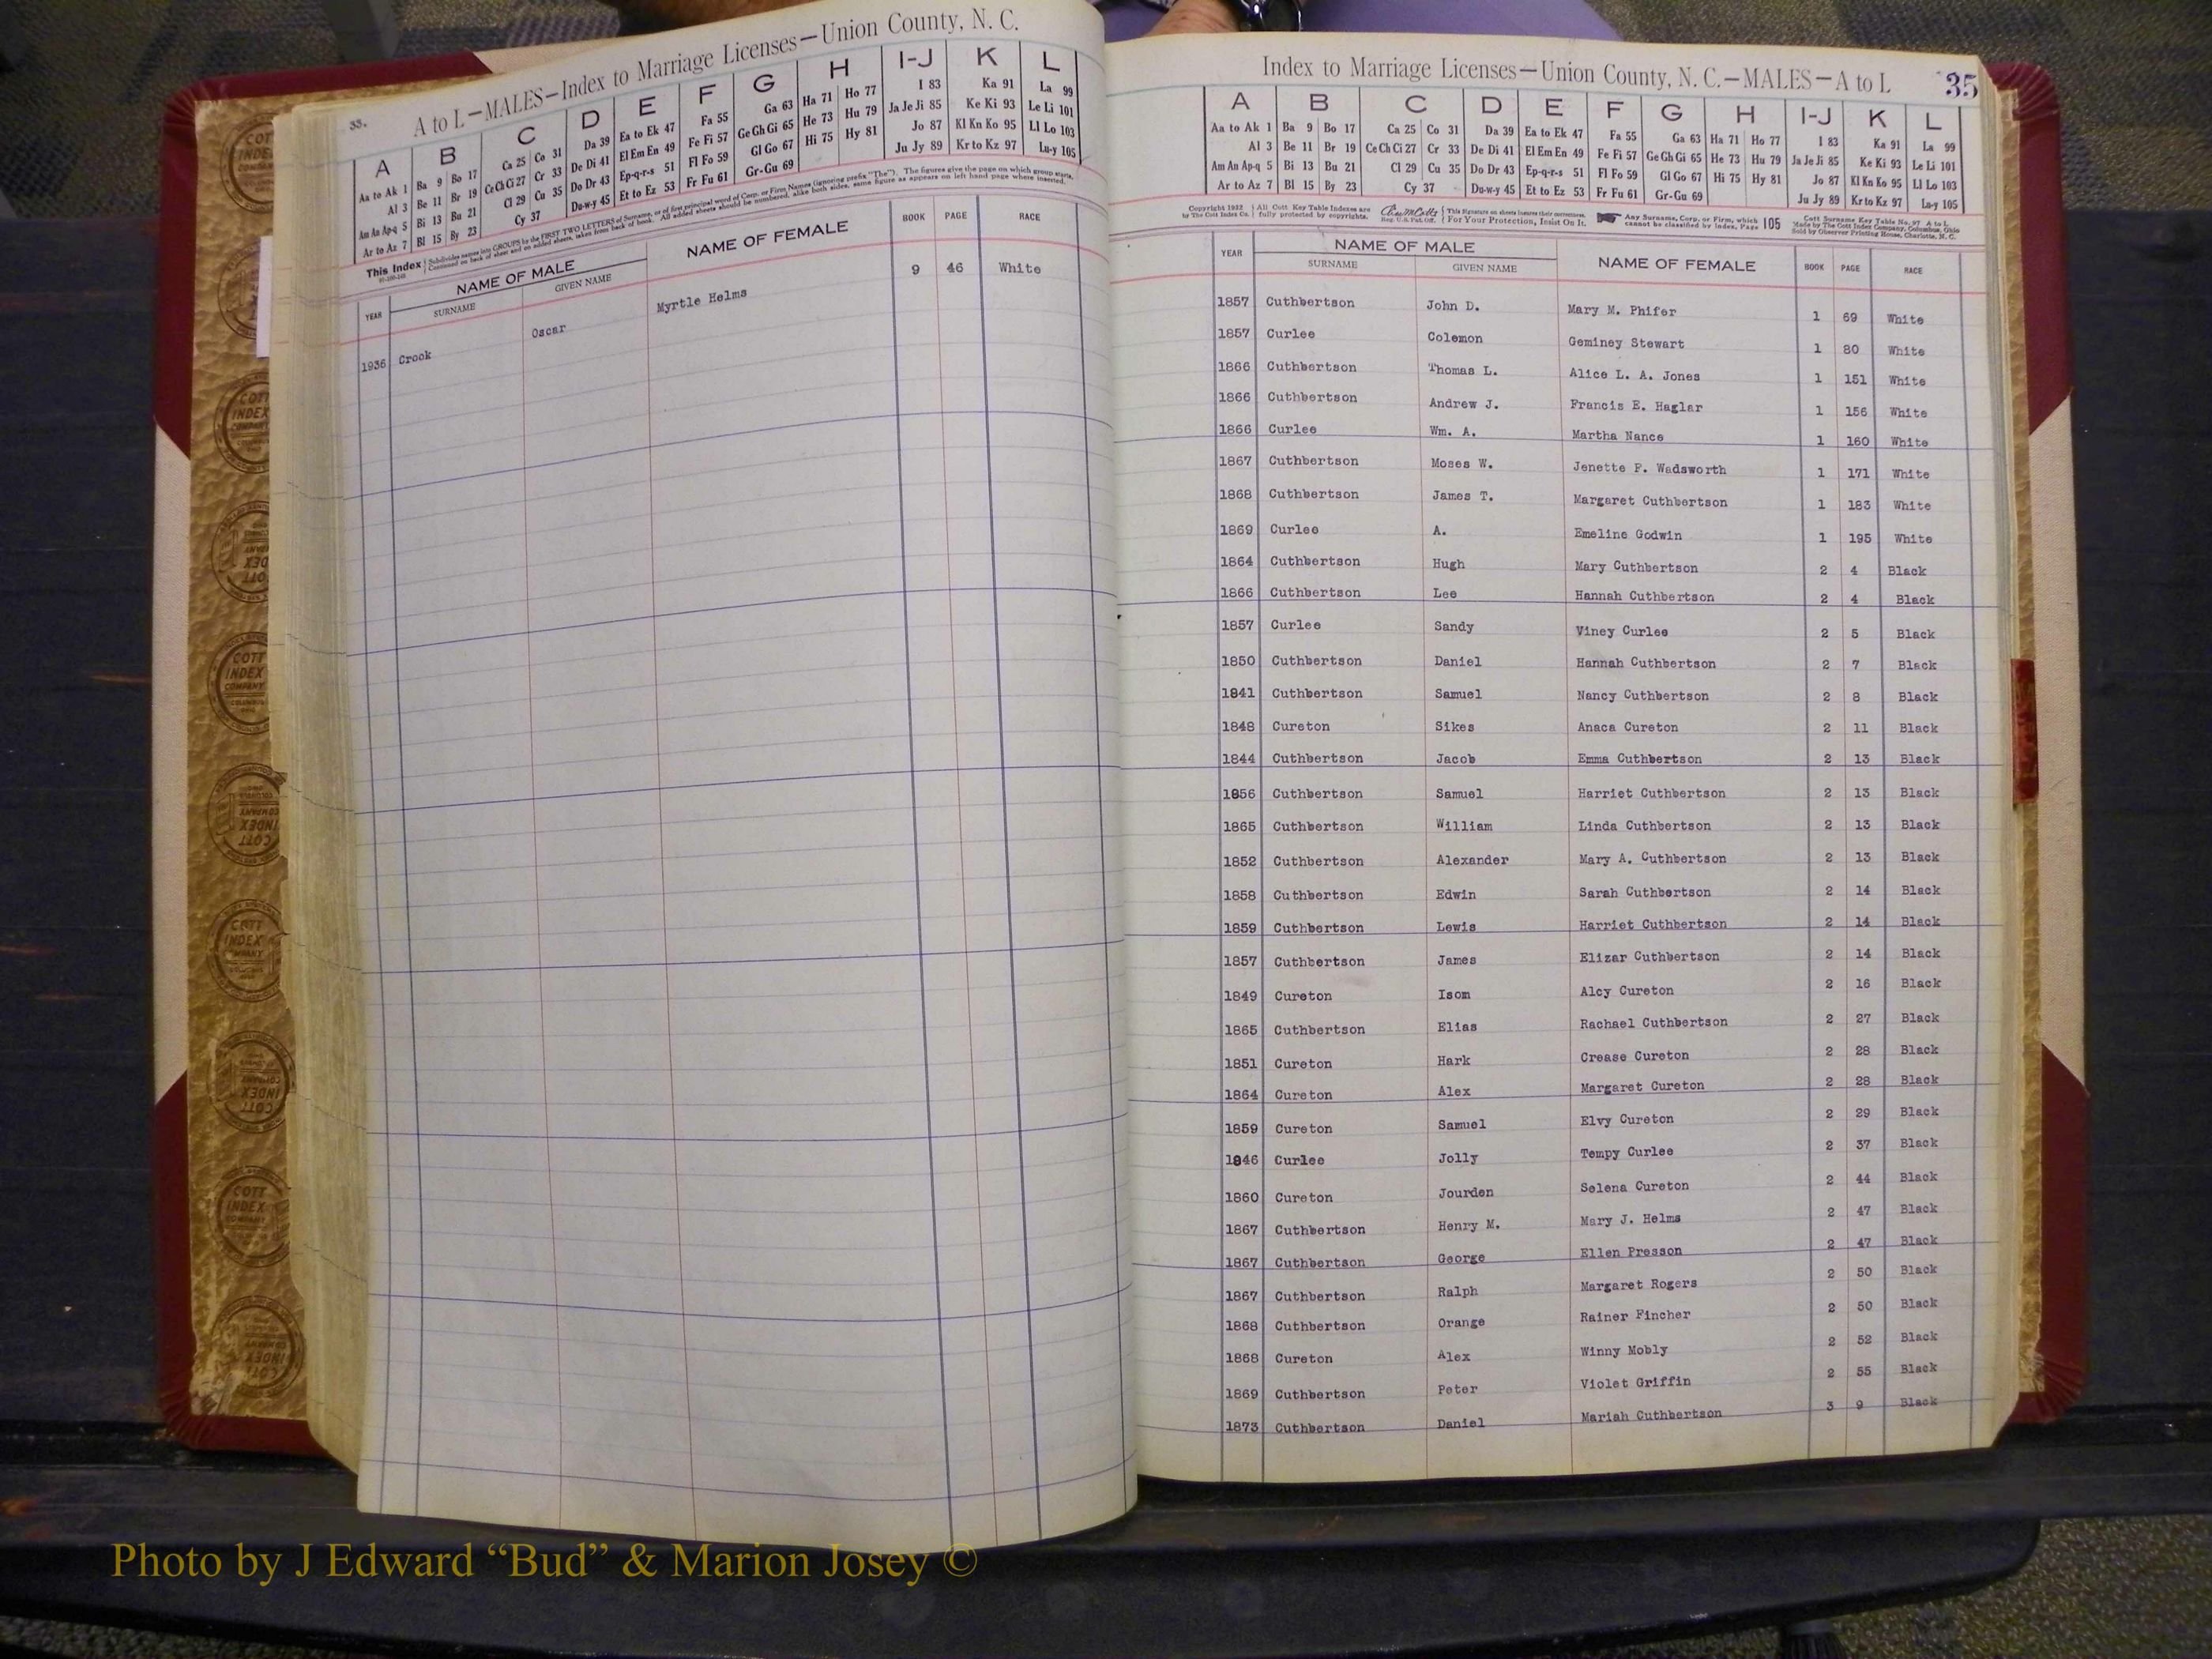 33.
A to L—MALES—Index to Marriage Licenses—Union County, N. C.
A B C D E F G H I-J K L
Aa to Ak 1 Ba 9 Bo 17 Ca 25 Co 31 Da 39 Ea to Ek 47 Fa 55 Ga 63 Ha 71 Ho 77 I 83 Ka 91 La 99
Al 3 Be 11 Br 19 Ce Ch Ci 27 Cr 33 De Di 41 El Em En 49 Fe Fi 57 Ge Gh Gi 65 He 73 Hu 79 Ja Je Ji 85 Ke Ki 93 Le Li 101
Am An Ap-q 5 Bi 13 Bu 21 Cl 29 Cu 35 Do Dr 43 Ep-q-r-s 51 Fl Fo 59 Gl Go 67 Hi 75 Hy 81 Jo 87 Kl Kn Ko 95 Ll Lo 103
Ar to Az 7 Bl 15 By 23 Cy 37 Du-w-y 45 Et to Ez 53 Fr Fu 61 Gr-Gu 69 Ju Jy 89 Kr to Kz 97 Lu-y 105
This Index Subdivides names into GROUPS by the FIRST TWO LETTERS of Surname, or of first principal word of Corp. or Firm Names (ignoring prefix "The"). The figures give the page on which group starts.
Continued on back of sheet and on added sheets, taken from back of book. All added sheets should be numbered, alike both sides, same figure as appears on left hand page where inserted.
YEAR NAME OF MALE NAME OF FEMALE BOOK PAGE RACE
SURNAME GIVEN NAME
1936 Crook Oscar Myrtle Helms 9 46 White
Index to Marriage Licenses—Union County, N. C.—MALES—A to L 35
A B C D E F G H I-J K L
Aa to Ak 1 Ba 9 Bo 17 Ca 25 Co 31 Da 39 Ea to Ek 47 Fa 55 Ga 63 Ha 71 Ho 77 I 83 Ka 91 La 99
Al 3 Be 11 Br 19 Ce Ch Ci 27 Cr 33 De Di 41 El Em En 49 Fe Fi 57 Ge Gh Gi 65 He 73 Hu 79 Ja Je Ji 85 Ke Ki 93 Le Li 101
Am An Ap-q 5 Bi 13 Bu 21 Cl 29 Cu 35 Do Dr 43 Ep-q-r-s 51 Fl Fo 59 Gl Go 67 Hi 75 Hy 81 Jo 87 Kl Kn Ko 95 Ll Lo 103
Ar to Az 7 Bl 15 By 23 Cy 37 Du-w-y 45 Et to Ez 53 Fr Fu 61 Gr-Gu 69 Ju Jy 89 Kr to Kz 97 Lu-y 105
Copyright 1922 All Cott Key Table Indexes are This Signature on sheets insures their correctness. Any Surname, Corp. or Firm, which 105 Cott Surname Key Table No. 97 A to L
by The Cott Index Co. fully protected by copyrights. Reg. U.S. Pat. Off. For Your Protection, Insist On It. cannot be classified by index, Page Made by The Cott Index Company, Columbus, Ohio
Sold by Observer Printing House, Charlotte, N. C.
YEAR NAME OF MALE NAME OF FEMALE BOOK PAGE RACE
SURNAME GIVEN NAME
1857 Cuthbertson John D. Mary M. Phifer 1 69 White
1857 Curlee Colemon Geminey Stewart 1 80 White
1866 Cuthbertson Thomas L. Alice L. A. Jones 1 151 White
1866 Cuthbertson Andrew J. Francis E. Haglar 1 156 White
1866 Curlee Wm. A. Martha Nance 1 160 White
1867 Cuthbertson Moses W. Jenette F. Wadsworth 1 171 White
1868 Cuthbertson James T. Margaret Cuthbertson 1 183 White
1869 Curlee A. Emeline Godwin 1 195 White
1864 Cuthbertson Hugh Mary Cuthbertson 2 4 Black
1866 Cuthbertson Lee Hannah Cuthbertson 2 4 Black
1857 Curlee Sandy Viney Curlee 2 5 Black
1850 Cuthbertson Daniel Hannah Cuthbertson 2 7 Black
1841 Cuthbertson Samuel Nancy Cuthbertson 2 8 Black
1848 Cureton Sikes Anaca Cureton 2 11 Black
1844 Cuthbertson Jacob Emma Cuthbertson 2 13 Black
1856 Cuthbertson Samuel Harriet Cuthbertson 2 13 Black
1865 Cuthbertson William Linda Cuthbertson 2 13 Black
1852 Cuthbertson Alexander Mary A. Cuthbertson 2 13 Black
1858 Cuthbertson Edwin Sarah Cuthbertson 2 14 Black
1859 Cuthbertson Lewis Harriet Cuthbertson 2 14 Black
1857 Cuthbertson James Elizar Cuthbertson 2 14 Black
1849 Cureton Isom Alcy Cureton 2 16 Black
1865 Cuthbertson Elias Rachael Cuthbertson 2 27 Black
1851 Cureton Hark Crease Cureton 2 28 Black
1864 Cureton Alex Margaret Cureton 2 28 Black
1859 Cureton Samuel Elvy Cureton 2 29 Black
1846 Curlee Jolly Tempy Curlee 2 37 Black
1860 Cureton Jourden Selena Cureton 2 44 Black
1867 Cuthbertson Henry M. Mary J. Helms 2 47 Black
1867 Cuthbertson George Ellen Presson 2 47 Black
1867 Cuthbertson Ralph Margaret Rogers 2 50 Black
1868 Cuthbertson Orange Rainer Fincher 2 50 Black
1868 Cureton Alex Winny Mobly 2 52 Black
1869 Cuthbertson Peter Violet Griffin 2 55 Black
1873 Cuthbertson Daniel Mariah Cuthbertson 3 9 Black
COTT INDEX COMPANY
Photo by J Edward “Bud” & Marion Josey ©